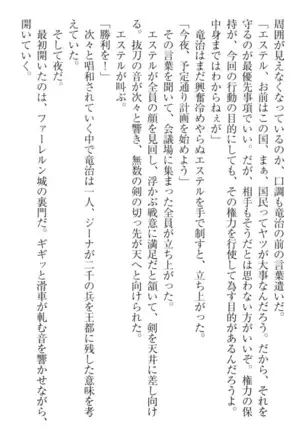 周囲が見えなくなっているのか、口調も竜治の前の言葉遣いだ。
「エステル、お前はこの国、まぁ、国民ってヤツが大事なんだろう。だから、それを
守るのが最優先事項でいい。だが、相手もそうだとは思わない方がいい。権力の保
持が、今回の行動の目的にしても、その権力を行使して為す目的があるんだろうよ。
中身まではわからねぇが」
竜治はまだ興奮冷めやらぬエステルを手で制すと、立ち上がった。
「今夜、予定通り計画を始めよう」
その言葉を聞いて、会議場に集まった全員が立ち上がった。
エステルが全員の顔を見回し、浮かぶ戦意に満足だと頷いて、剣を天井に差し向け
る。抜刀の音が次々と響き、無数の剣の切っ先が天へと向けられた。
エステルが叫ぶ。
「勝利を！」
次々と唱和されていく中で竜治は一人、ジーナが二千の兵を王都に残した意味を考
えていた。
そして夜だ。
最初開いたのは、ファーレルン城の裏門だ。ギギッと滑車が軋む音を響かせながら、
開いていく。